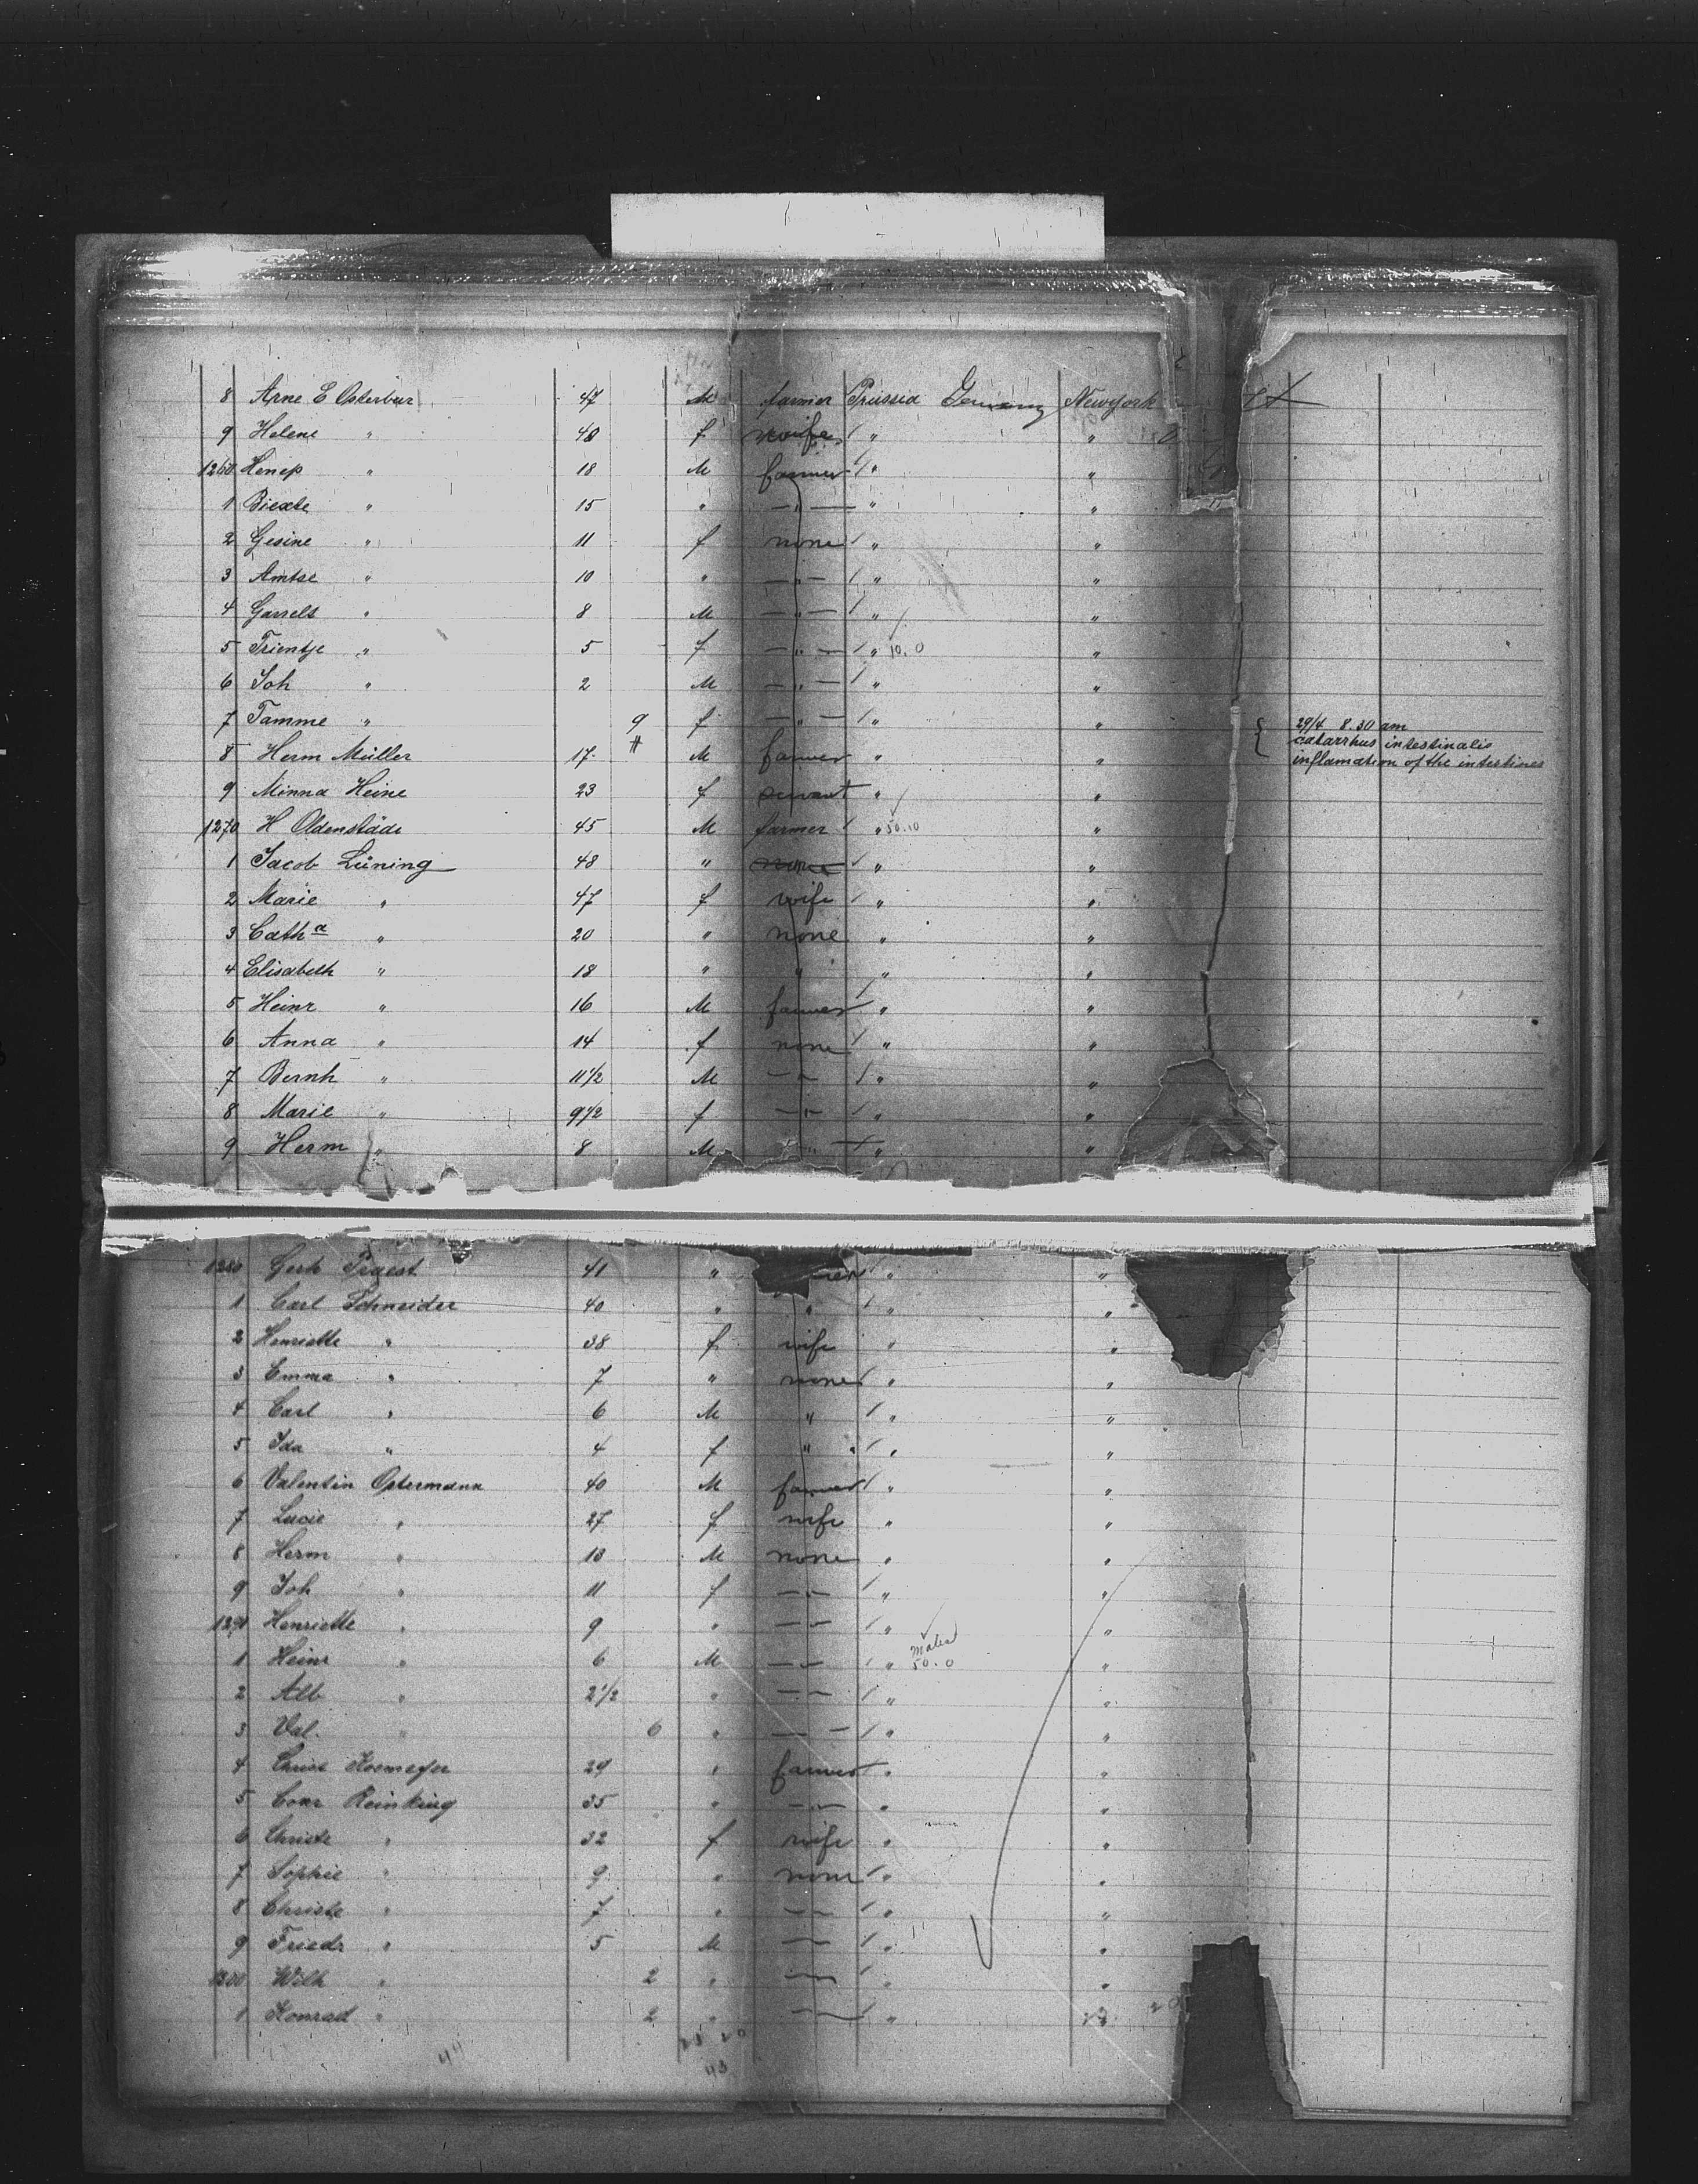 8 Arne E Osterbur 47 M farmer Prussia Germany New York
9 Helene " 48 f wife " "
1260 Henep " 18 M farmer " "
1 " 15 " — " — " "
2 Gesine " 11 f none " "
3 Amtse " 10 " — " — " "
4 Garrels " 8 M — " — " "
5 Trientje " 5 f — " — " 10.0 "
6 Joh " 2 M — " — " "
7 Tamme " 9 f — " — " " 29/4 8.30 am
catarrhus intestinalis
8 Herm Müller 17 M farmer " " inflamation of the intestines
9 Minna Heine 23 f servant " "
1270 H Oldenstäde 45 M farmer " 50.10 "
1 Jacob Lüning 48 " none " "
2 Marie " 47 f wife " "
3 Catha " 20 " none " "
4 Elisabeth " 18 " " " "
5 Heinr " 16 M farmer " "
6 Anna " 14 f none " "
7 Bernh " 11 1/2 M — " — " "
8 Marie " 9 1/2 f — " — " "
9 Herm " 8 M " " "
1280 Gerh 41 " " "
1 Carl Schneider 40 " " " "
2 Henriette " 38 f wife " "
3 Emma " 7 " none " "
4 Carl " 6 M " " "
5 Ida " 4 f " " "
6 Valentin Ostermann 40 M farmer " "
7 Lucie " 27 f wife " "
8 Herm " 13 M none " "
9 Joh " 11 f — " — " "
1290 Henriette " 9 " — " — " "
1 Heinr " 6 M — " — " 50.0 "
2 Alb " 2 1/2 " — " — " "
3 Val. " 6 " — " — " "
4 29 " farmer " "
5 Conr Reinking 35 " — " — " "
6 Christe " 32 f wife " "
7 Sophie " 9 " none " "
8 Christe " 7 " — " — " "
9 Friedr " 5 M — " — " "
1300 Wilh " 2 " — " — " "
1 Konrad " 2 " — " — "
44 43